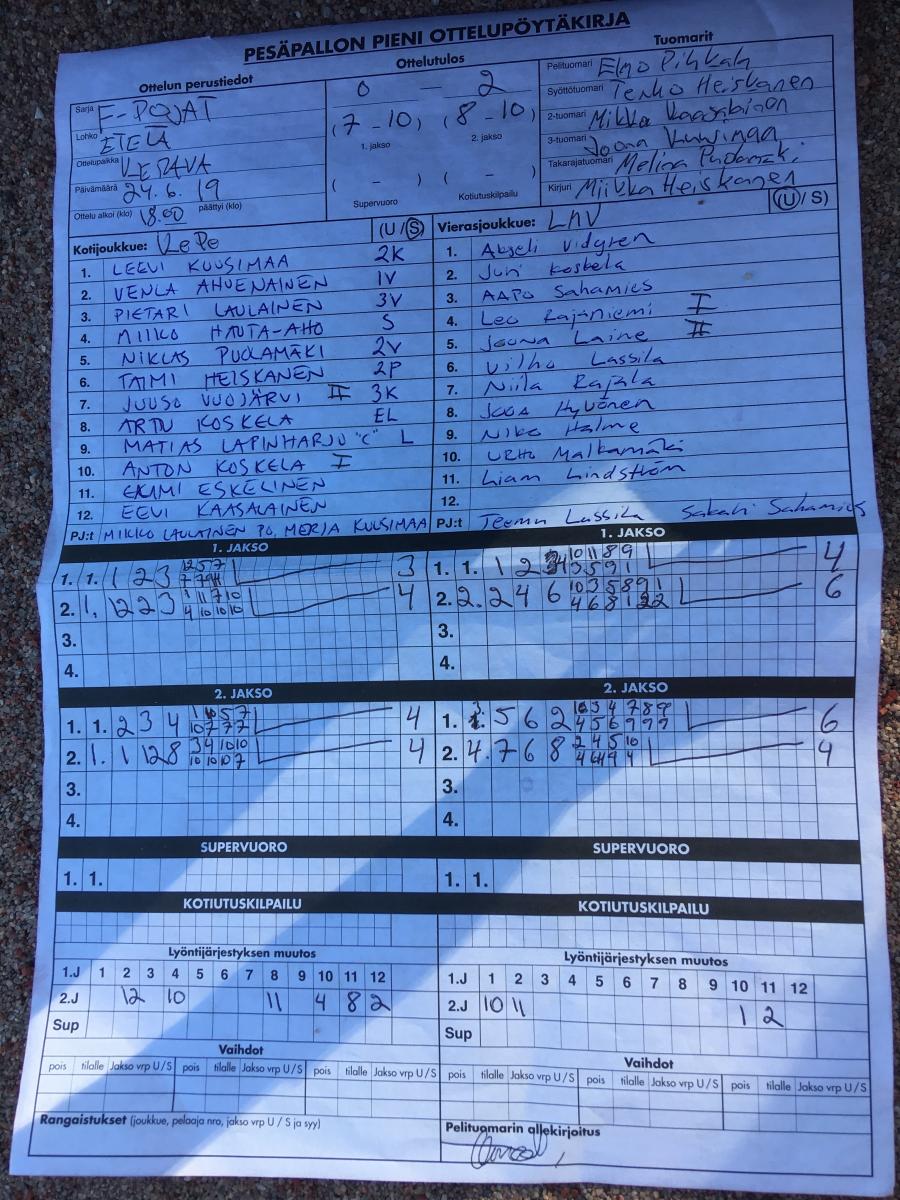 PESÄPALLON PIENI OTTELUPÖYTÄKIRJA
Ottelun perustiedot
Sarja F-POJAT
Lohko ETELÄ
Ottelupaikka
Päivämäärä 24.6.19
Ottelu alkoi (klo) 18.00 päättyi (klo)
Ottelutulos
0 - 2
(7 - 10) (8 - 10)
1. jakso 2. jakso
( - ) ( - )
Supervuoro Kotiutuskilpailu
Tuomarit
Pelituomari Elmo
Syöttötuomari Heiskanen
2-tuomari Mikko
3-tuomari Joona Kuusimaa
Takarajatuomari Melina
Kirjuri Miikka Heiskanen
Kotijoukkue: VePe (U / S)
1. LEEVI KUUSIMAA 2K
2. VENLA AHVENAINEN 1V
3. PIETARI LAULAINEN 3V
4. MIIKO HAUTA-AHO S
5. NIKLAS PUOLAMÄKI 2V
6. TAIMI HEISKANEN 2P
7. JUUSO VUOJÄRVI II 3K
8. ARTU KOSKELA EL
9. MATIAS LAPINHARJU "C" L
10. ANTON KOSKELA I
11. ESKELINEN
12. EEVI KAASALAINEN
PJ:t MIKKO LAULAINEN PO, MERJA KUUSIMAA
Vierasjoukkue: LMV (U / S)
1. Akseli Vidgren
2. Juri Koskela
3. AAPO Sahamies
4. Leo Rajaniemi I
5. Joona Laine II
6. Vilho Lassila
7. Niila Rajala
8. Hyvönen
9. Niko Halme
10. URHO Malkamäki
11. Liam Lindström
12.
PJ:t Teemu Lassila Sakari Sahamies
1. JAKSO
1. 1. 1 2 3 3
2. 1. 12 2 3 4
3.
4.
1. JAKSO
1. 1. 1 2 4
2. 2. 2 4 6 6
3.
4.
2. JAKSO
1. 1. 2 3 4 4
2. 1. 1 12 8 4
3.
4.
2. JAKSO
1. 5 6 2 6
2. 4. 7 6 8 4
3.
4.
SUPERVUORO
1. 1.
SUPERVUORO
1. 1.
KOTIUTUSKILPAILU
KOTIUTUSKILPAILU
Lyöntijärjestyksen muutos
1.J 1 2 3 4 5 6 7 8 9 10 11 12
2.J 12 10 11 4 8 2
Sup
Lyöntijärjestyksen muutos
1.J 1 2 3 4 5 6 7 8 9 10 11 12
2.J 10 11 1 2
Sup
Vaihdot
pois tilalle Jakso vrp U / S pois tilalle Jakso vrp U / S pois tilalle Jakso vrp U / S
Vaihdot
pois tilalle Jakso vrp U / S pois tilalle Jakso vrp U / S pois tilalle Jakso vrp U / S
Rangaistukset (joukkue, pelaaja nro, jakso vrp U / S ja syy)
Pelituomarin allekirjoitus